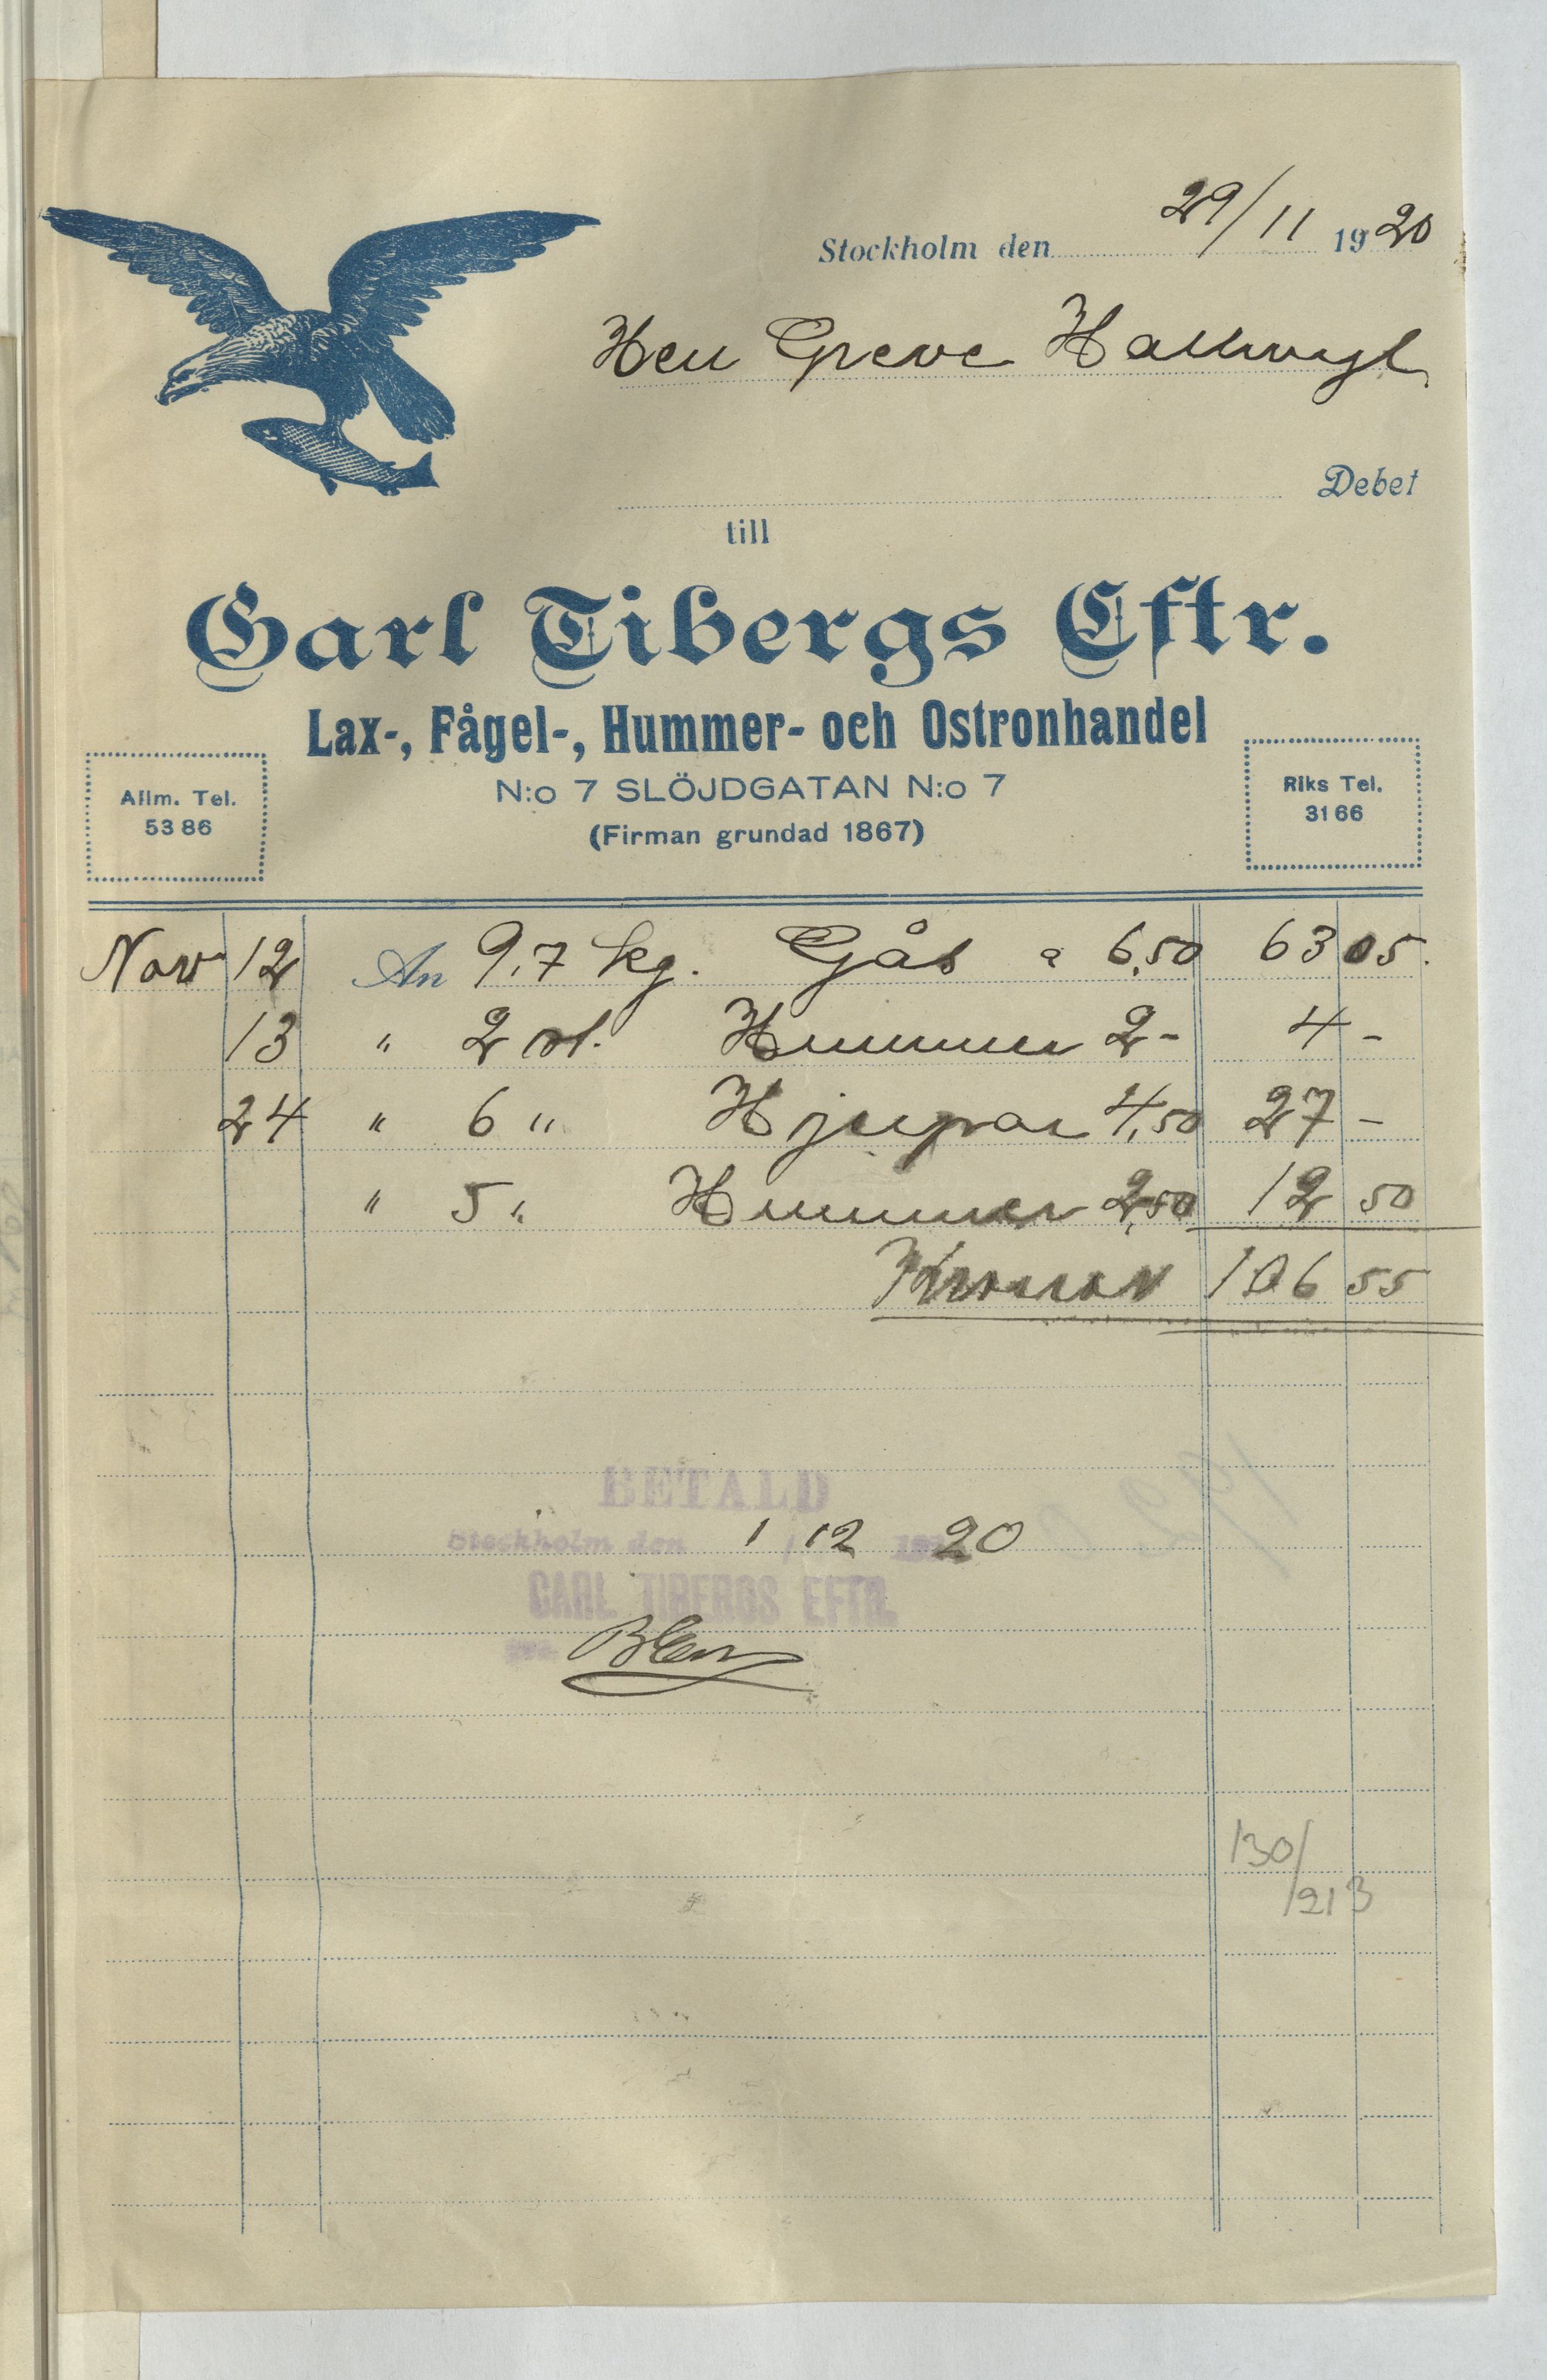 Stockholm den 29/11 1920
Herr Greve Hallwyl
Debet
till
Carl Tibergs Eftr.
Lax-, Fågel-, Hummer- och Ostronhandel
N:o 7 SLÖJDGATAN N:o 7
(Firman grundad 1867)
Allm. Tel.
53 86
Riks Tel.
31 66
Nov 12 An 9,7 kg. Gås a 6,50 63 05.
13 " 2 st. Hummer 2- 4 -
24 " 6 " Hjerpar 4,50 27 -
" 5 " Hummer 2,50 12 50
Kronor 106 55
BETALD
Stockholm den 1 12 20
CARL TIBERGS EFTR.
130/213